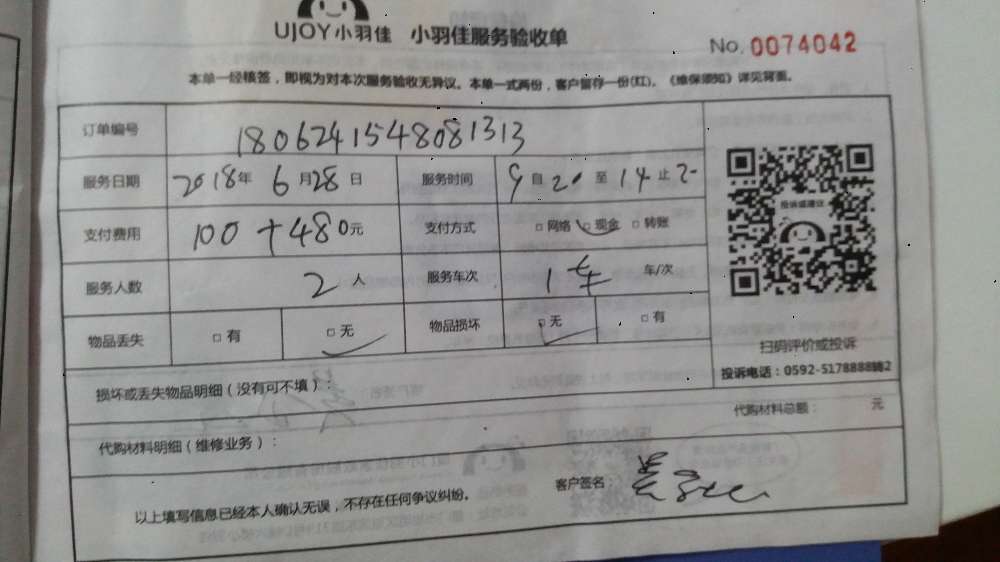 UJOY小羽佳 小羽佳服务验收单
No. 0074042
本单一经核签，即视为对本次服务验收无异议。本单一式两份，客户留存一份(红)。《维保须知》详见背面。
订单编号 1806241548081313
服务日期 2018年 6月28日 服务时间 9自20至14止2
支付费用 100+480元 支付方式 □网络 □现金 □转账
服务人数 2人 服务车次 1车 车/次
物品丢失 □有 □无 物品损坏 □无 □有
投诉或建议
扫码评价或投诉
投诉电话：0592-5178888转2
损坏或丢失物品明细（没有可不填）：
代购材料总额： 元
代购材料明细（维修业务）：
客户签名：
以上填写信息已经本人确认无误，不存在任何争议纠纷。